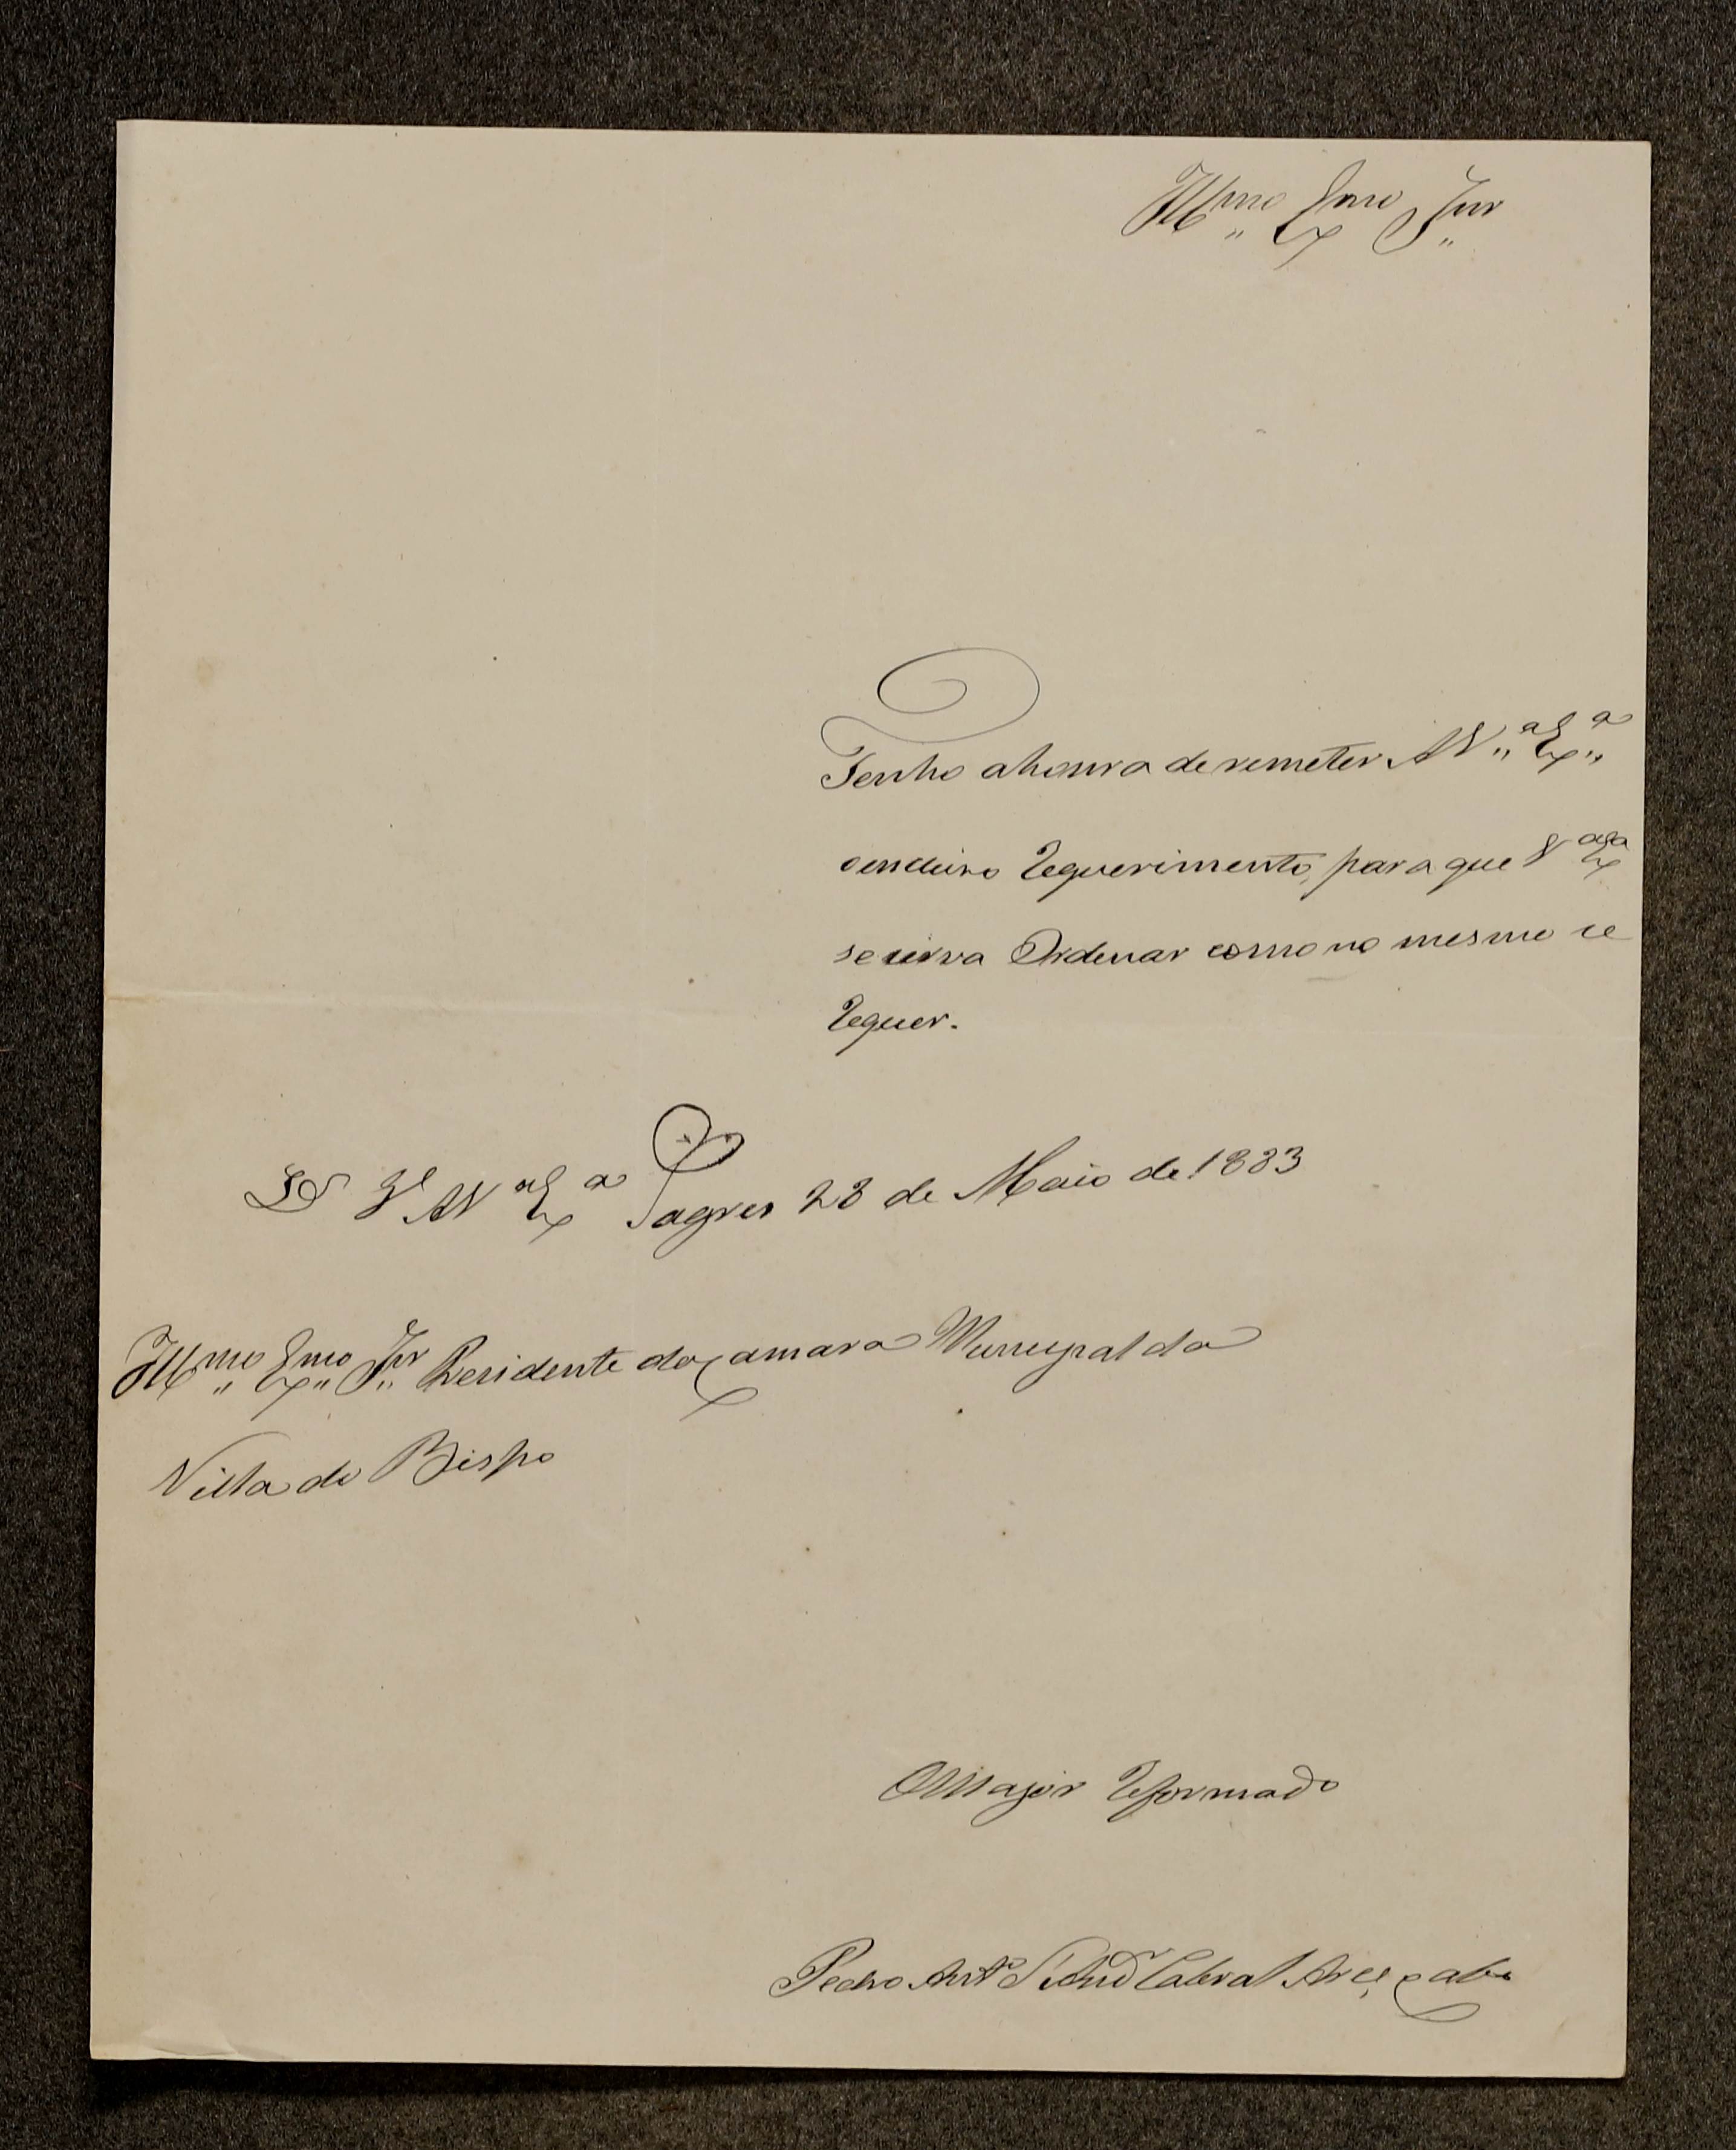 Illmo Exmo Snr
Tenho ahonra de remeter A V.a Ex.a
Requerimento, para que V.a Ex.a
se sirva Ordenar como no mesmo se
Requer.
Ds Ge A V.a Ex.a Sagres 28 de Maio de 1883
Illmo Exmo Snr Presidente da Camara Municipal da
Villa do Bispo
O Major Reformado
Pedro Anto Cabral